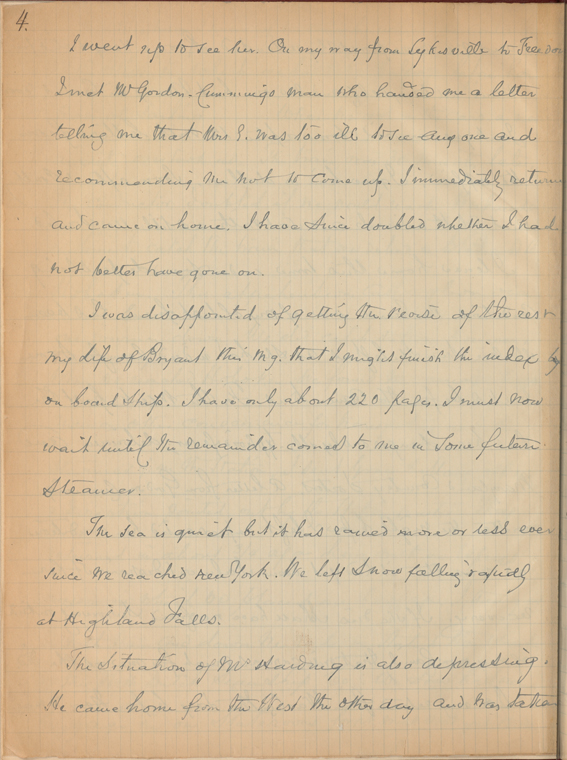 4.
I went up to see her. On my way from Sykesville to Freedom
I met Mr Gordon-Cummings man who handed me a letter
telling me that Mrs E. was too ill to see any one and
recommending me not to come up. I immediately return
and came on home. I have since doubted whether I had
not better have gone on.
I was disappointed of getting the revise of the rest
my life of Bryant this mg. that I might finish the index by
on board ship. I have only about 220 pages. I must now
wait until the remainder comes to me in some future
Steamer.
The sea is quiet but it has rained more or less ever
since we reached New York. We left snow falling rapidly
at Highland Falls.
The Situation of Mr Harding is also depressing.
He came home from the West the other day and was taken